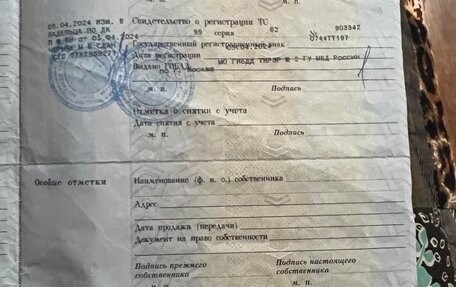 м. п. Подпись
05.04.2024 ИЗМ. В Свидетельство о регистрации ТС
ВЛАДЕЛЬЦА ПО ДК 99 серия 62 № 903942
ОТ 05.04.2024 Государственный регистрационный знак О744ТТ197
Дата регистрации
СТС Выдано ГИБДД МО ГИБДД ТНРЭР № 2 ГУ МВД России
по г. Москве
м. п. Подпись
Отметка о снятии с учета
Дата снятия с учета
м. п. Подпись
Особые отметки Наименование (ф. и. о.) собственника
Адрес
Дата продажи (передачи)
Документ на право собственности
Подпись прежнего собственника
Подпись настоящего собственника
м. п. м. п.